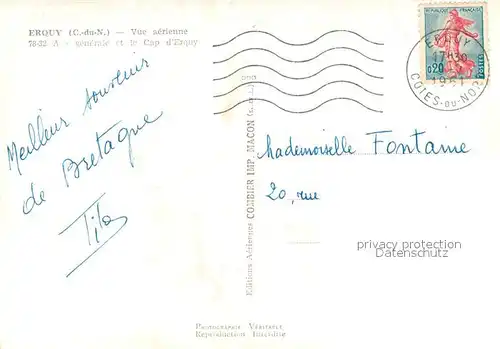 ERQUY (C.-du-N.) — Vue aérienne
78-32 A - générale et le Cap d'Erquy
Meilleur souvenir
de Bretagne
Tila
Editions Aériennes COMBIER IMP. MACON
REPUBLIQUE FRANÇAISE
0,20
POSTES
ERQUY
17H30
1961
COTES-DU-NORD
Mademoiselle Fontaine
20, rue
privacy protection
Datenschutz
Photographie Véritable
Reproduction Interdite